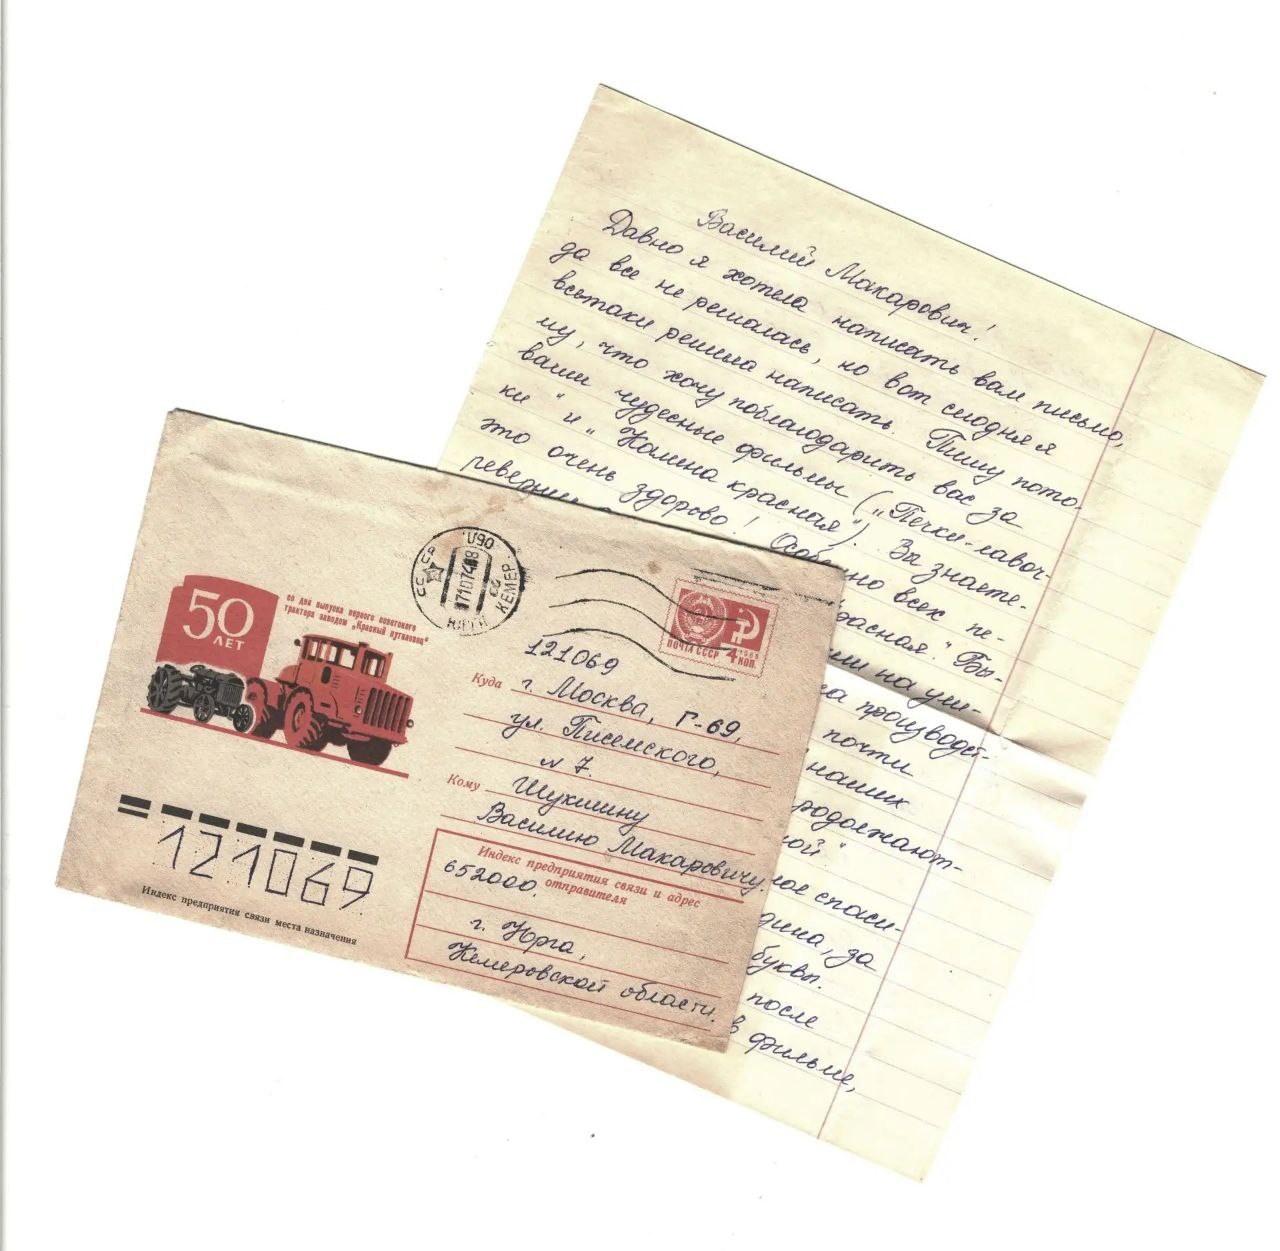 Василий Макарович!
Давно я хотела написать вам письмо,
да все не решалась, но вот сиодня я
всетаки решила написать. Пишу пото-
му, что хочу поблагодарить вас за
ваши чудесные фильмы („Печки-лавоч-
ки" и „Калина красная"). Вы знаете-
это очень здорово! Особенно всех пе-
расная." Бы-
или на ули-
производст-
почти
наших
родолжают-
ой"
ое спаси-
дина, за
буквы.
после
в фильме,
50
ЛЕТ
со дня выпуска первого советского
трактора заводом „Красный путиловец"
СССР
КЕМЕР.
ЮРГА
ПОЧТА СССР 4 КОП.
1966
121069
Куда г. Москва, Г-69,
ул. Писемского,
№ 7.
Кому Шукшину
Василию Макаровичу.
Индекс предприятия связи и адрес
отправителя
652000.
г. Юрга,
Кемеровской области.
121069
Индекс предприятия связи места назначения